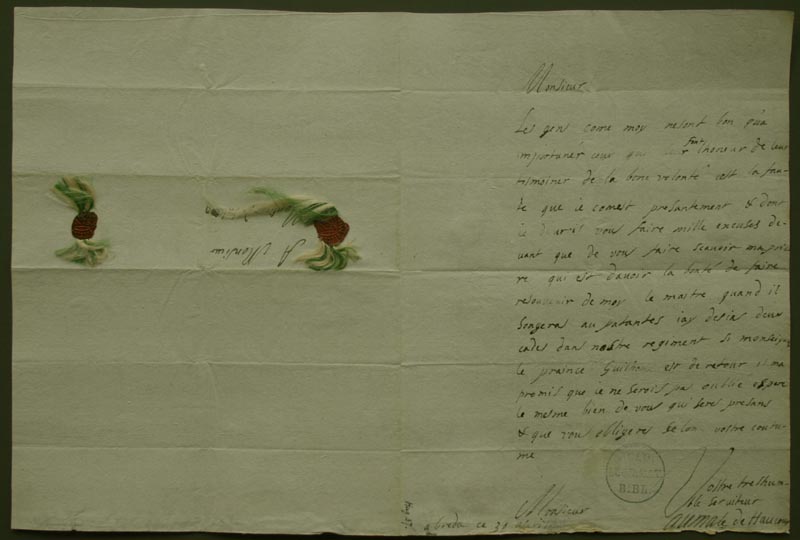 Monsieur
Les gens come moy nesont bon qua
importuner ceux qui leur font lhoneur de leur
temoiner de la bone volonté cest la fau-
te que ie comest presantement & dont
ie deurés vous faire mille excuses de-
uant que de vous faire scauoir ma priè
re qui est dauoir la bonté de faire
resouuenir de moy le maitre quand il
songera au patantes iay desia deux
cadés dans nostre regiment si monseig
le praince Guilhaume est de retour il ma
promis que ie ne serois pas oublié espere
le mesme bien de vous qui seres presans
& que vous obligeres selon vostre coutu-
me
Monsieur
Vostre tres hum-
ble serviteur
aumale de Haucourt
a breda ce 31
A Monsieur